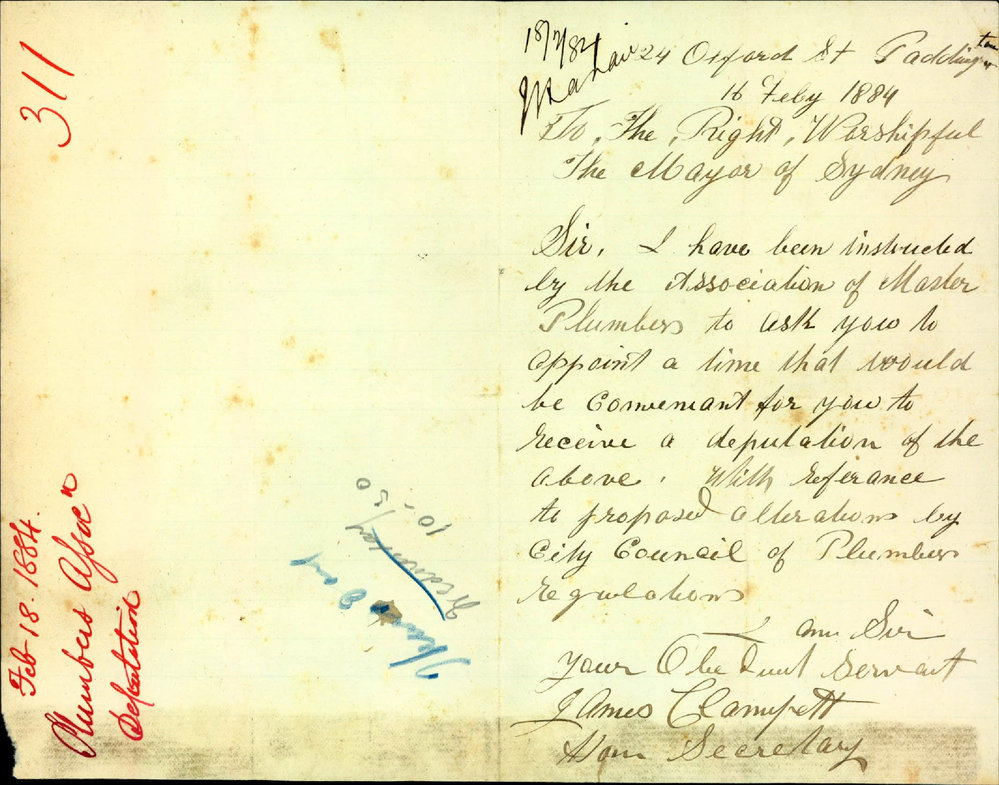 311
Feb 18. 1884.
Plumbers Assocn
Deputation
Wednesday
10-30
18/2/84
24 Oxford St Paddington
16 Feby 1884
To, The, Right, Worshipful
The Mayor of Sydney
Sir, I have been instructed
by the Association of Master
Plumbers to ask you to
appoint a time that would
be Conveniant for you to
receive a deputation of the
above. With referance
to proposed alterations by
City Council of Plumbers
regulations
I am Sir
your Obedient Servant
James Clampett
Hon Secretary